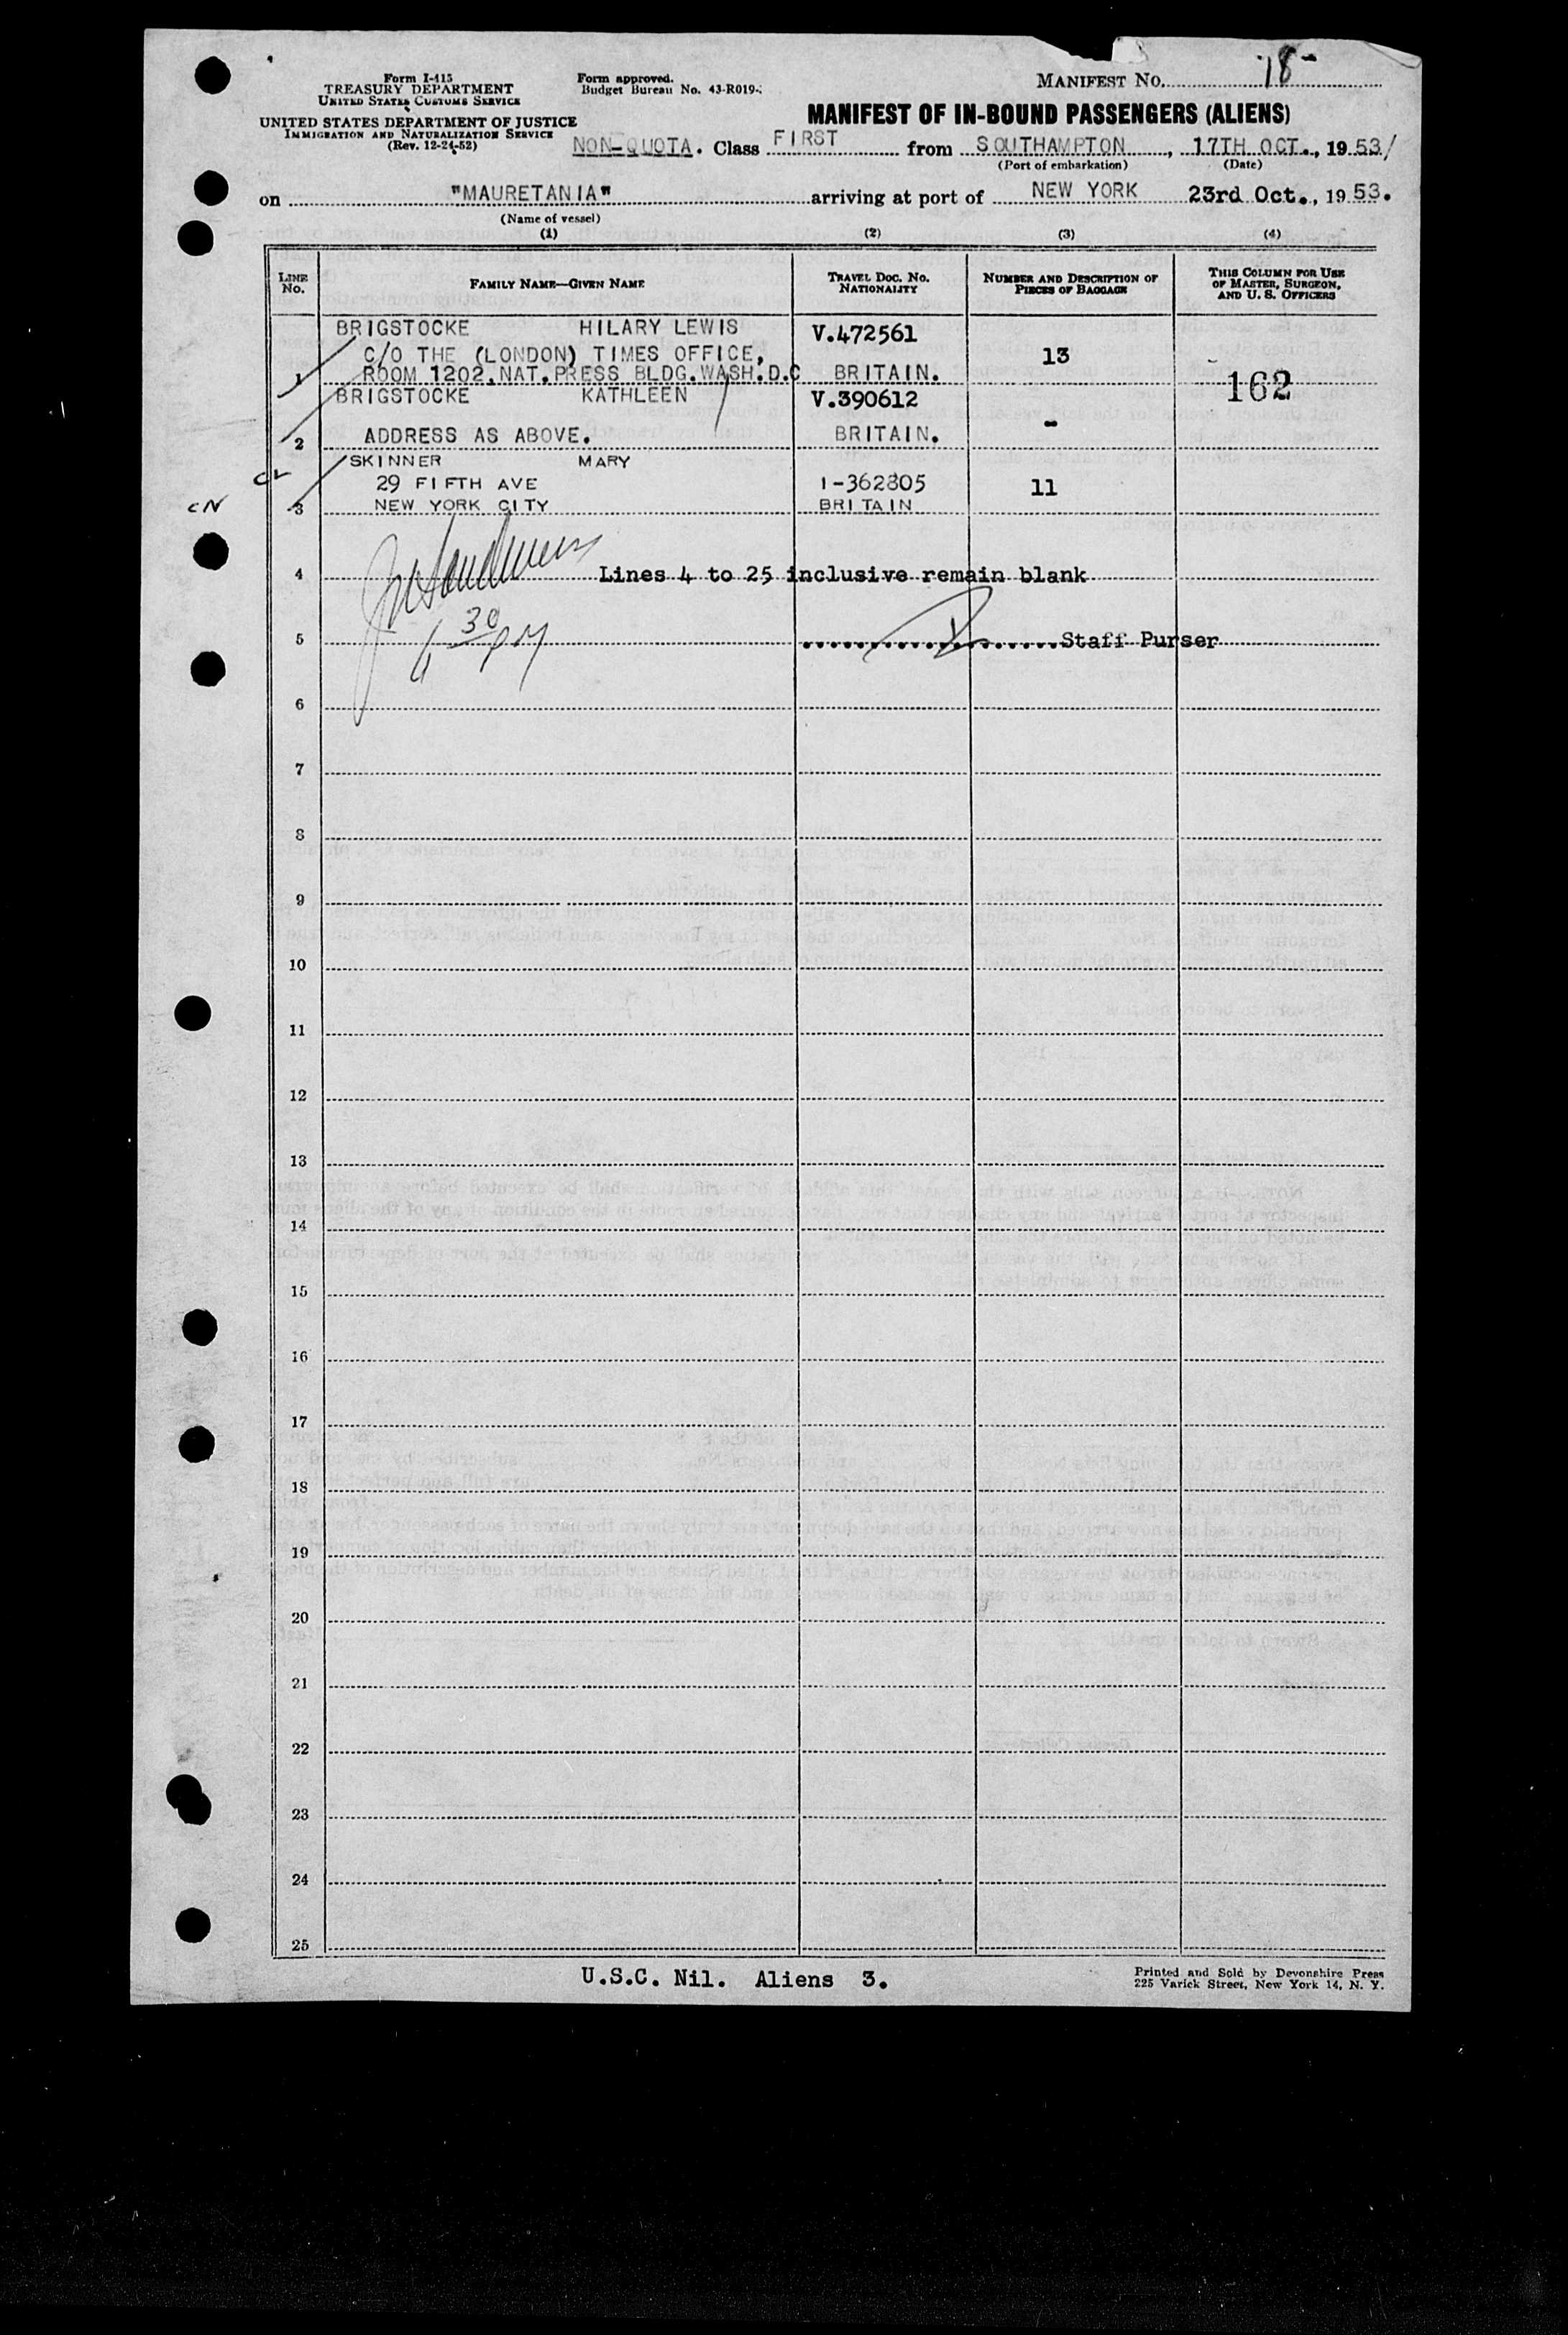 Form I-415
TREASURY DEPARTMENT
UNITED STATES CUSTOMS SERVICE
UNITED STATES DEPARTMENT OF JUSTICE
IMMIGRATION AND NATURALIZATION SERVICE
(Rev. 12-24-52)
Form approved.
Budget Bureau No. 43-R019-
MANIFEST NO. 18-
MANIFEST OF IN-BOUND PASSENGERS (ALIENS)
NON-QUOTA. Class FIRST from SOUTHAMPTON, 17TH OCT., 1953/
(Port of embarkation) (Date)
on "MAURETANIA" arriving at port of NEW YORK 23rd Oct., 1953.
(Name of vessel)
(1) (2) (3) (4)
LINE NO. FAMILY NAME—GIVEN NAME TRAVEL DOC. NO. NATIONALITY NUMBER AND DESCRIPTION OF PIECES OF BAGGAGE THIS COLUMN FOR USE OF MASTER, SURGEON, AND U. S. OFFICERS
BRIGSTOCKE HILARY LEWIS V.472561
C/O THE (LONDON) TIMES OFFICE, 13
1 ROOM 1202, NAT. PRESS BLDG. WASH. D.C BRITAIN. 162
BRIGSTOCKE KATHLEEN V.390612
-
2 ADDRESS AS ABOVE. BRITAIN.
SKINNER MARY
29 FIFTH AVE 1-362805 11
cN 3 NEW YORK CITY BRITAIN
4 Lines 4 to 25 inclusive remain blank
30
PM
5 Staff Purser
6
7
8
9
10
11
12
13
14
15
16
17
18
19
20
21
22
23
24
25
U.S.C. Nil. Aliens 3.
Printed and Sold by Devonshire Press
225 Varick Street, New York 14, N. Y.